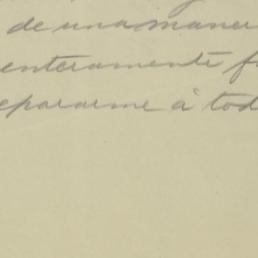 de una maner
enteramente f
epararme à tod